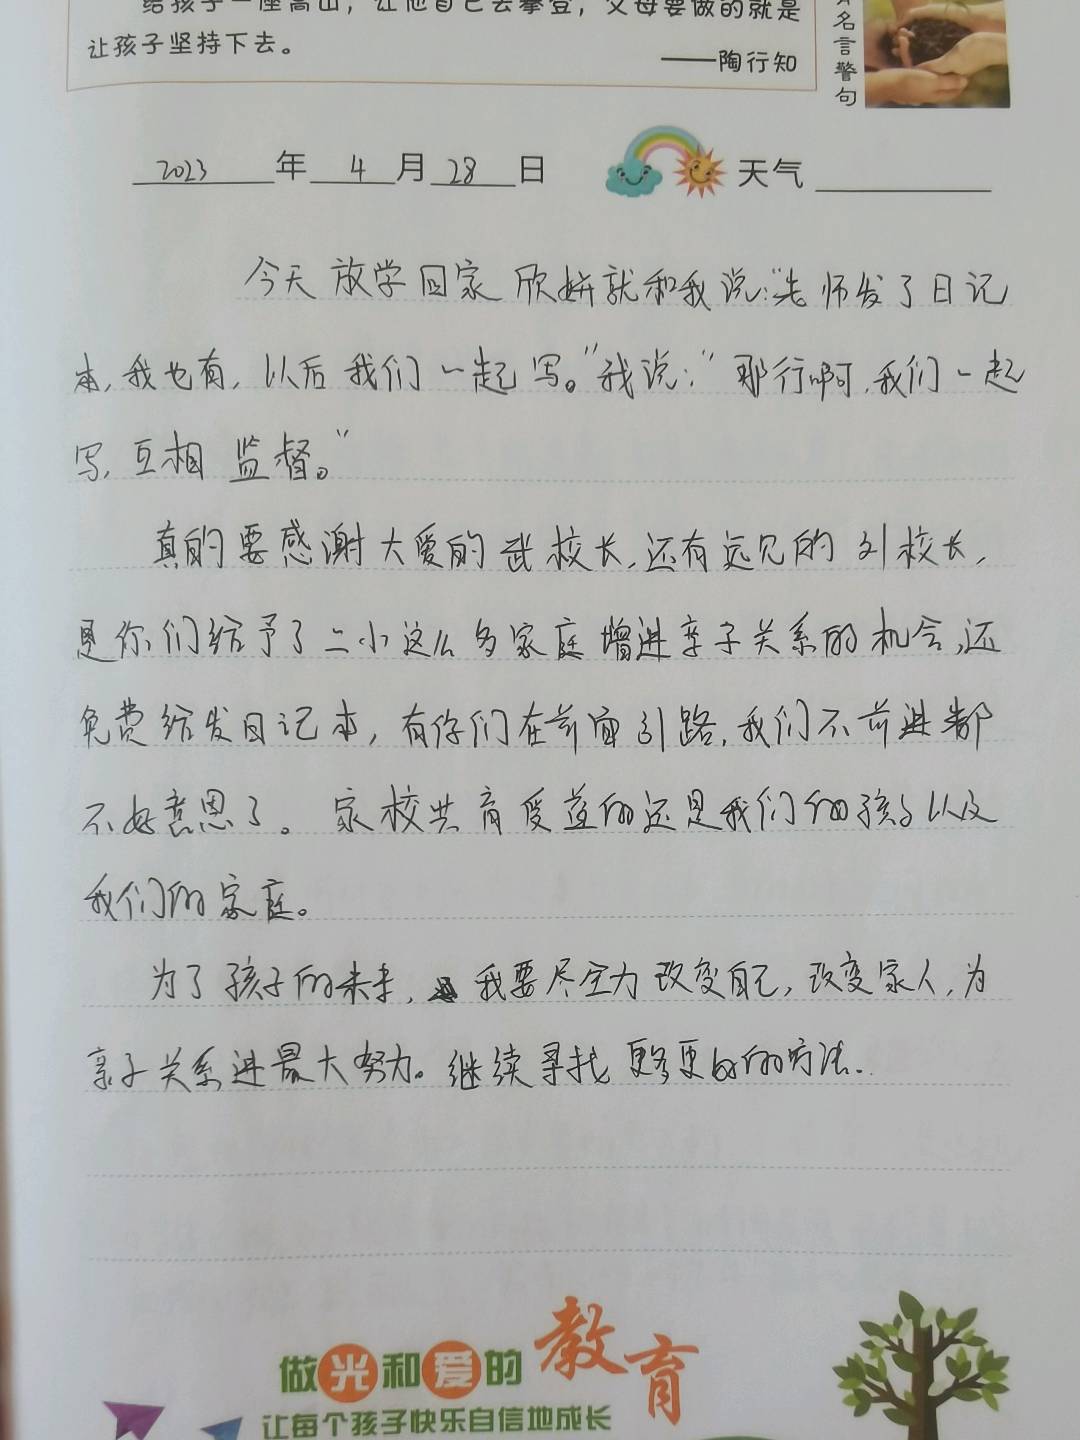 给孩子一座高山，让他自己去攀登，父母要做的就是
让孩子坚持下去。
——陶行知
名言警句
2023年4月28日 天气
今天放学回家欣妍就和我说:“老师发了日记
本,我也有,以后我们一起写。”我说:“那行啊,我们一起
写,互相监督。”
真的要感谢大爱的武校长,还有远见的刘校长,
是你们给予了二小这么多家庭增进亲子关系的机会,还
免费给发日记本,有你们在前面引路,我们不前进都
不好意思了。家校共育受益的还是我们的孩子以及
我们的家庭。
为了孩子的未来,我要尽全力改变自己,改变家人,为
亲子关系进最大努力。继续寻找更多更好的方法.
做光和爱的教育
让每个孩子快乐自信地成长